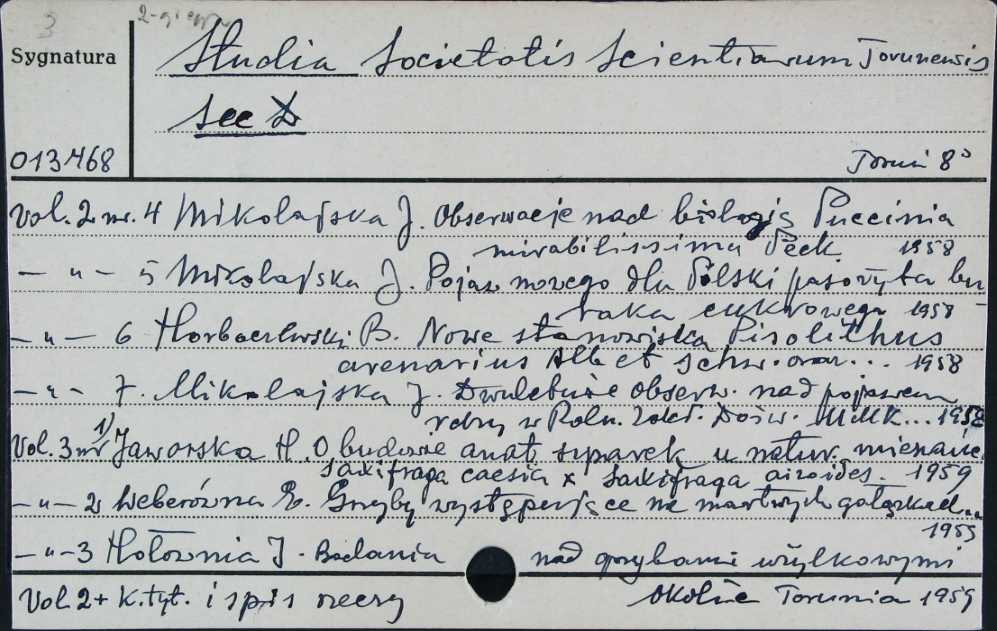 3
Sygnatura
Studia Societatis Scientiarum Torunensis
Sec D
013468
Toruń 8°
Vol. 2 nr. 4 Mikołajska J. Obserwacje nad biologią Puccinia
mirabilissima Peck. 1958
— " — 5 Mikołajska J. Pojaw nowego dla Polski pasożyta bu-
raka cukrowego 1958
— " — 6 Horbaczewski B. Nowe stanowiska Pisolithus
arenarius Alb et Schw. oraz... 1958
— " — 7. Mikołajska J. Dwuletnie obserw. nad pojawem
rdzy w Roln. Zakł. Dośw. UMK... 1958
Vol. 3 nr 1/ Jaworska H. O budowie anat. szparek u natur. mieszańc.
Saxifraga caesia x Saxifraga aizoides. 1959
— " — 2 Weberówna E. Grzyby występujące na martwych gałązkach..
1959
— " — 3 Hołownia I. Badania nad grzybami wiyłkowymi
okolic Torunia 1959
Vol. 2 + k. tyt. i spis rzeczy